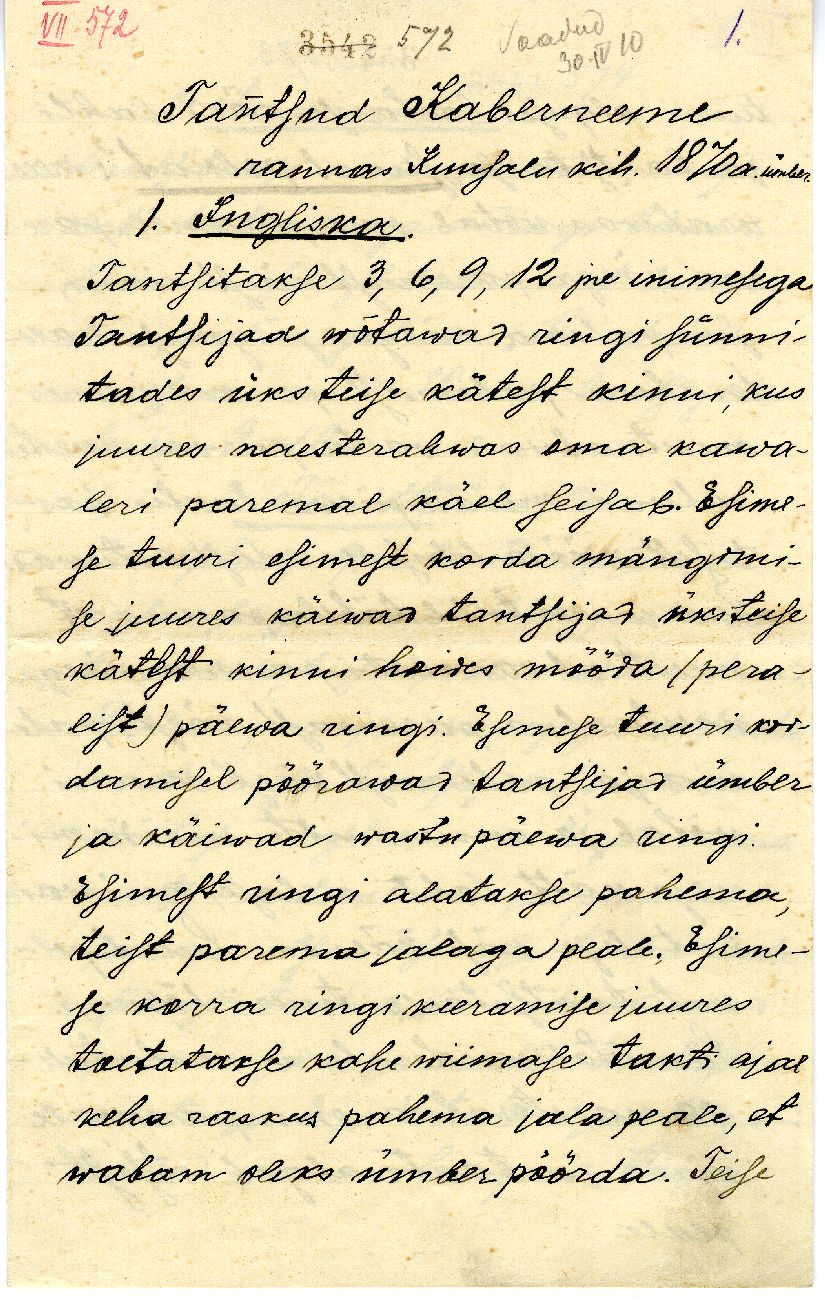 VII 572
3542 572 Vaadud 1.
30.IV 10
Tantsud Kaberneeme
rannas Kuusalu kih. 1870 a. ümber
1. Ingliska.
Tantsitakse 3, 6, 9, 12 jne inimesega
Tantsijad wõtawad ringi sünni-
tades üks teise kätest kinni, kus
juures naesterahwas oma kawa-
leri paremal käel seisab. Esime-
se tuuri esimest korda mängimi-
se juures käiwad tantsijad üksteise
kätest kinni hoides mööda (pera-
list) päewa ringi. Esimese tuuri kor-
damisel pöörawad tantsijad ümber
ja käiwad wastu päewa ringi.
Esimest ringi alatakse pahema,
teist parema jalaga peale. Esime-
se korra ringi keeramise juures
toetatakse kahe wiimase takti ajal
keha raskus pahema jala peale, et
wabam oleks ümber pöörda. Teise